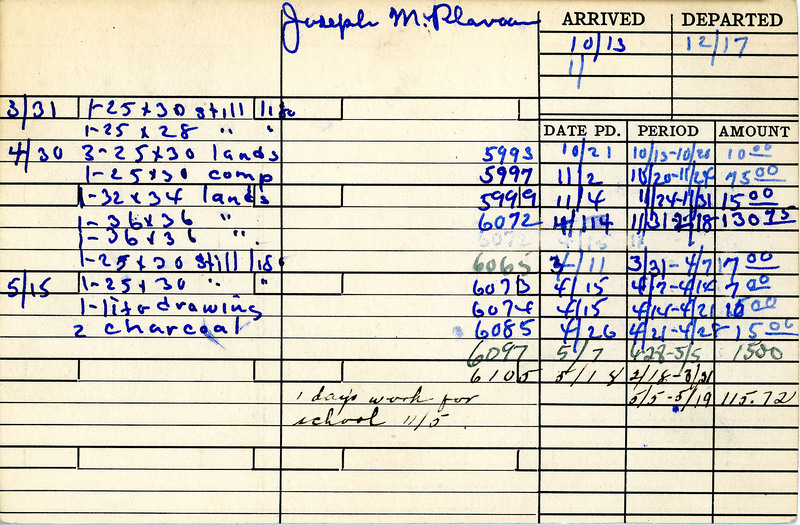 Joseph McPlavan
ARRIVED DEPARTED
10/13 12/17
11/
3/31 1-25x30 still life
1-25 x 28 " "
DATE PD. PERIOD AMOUNT
4/30 3-25x30 lands 5993 10/21 10/13-10/20 10 00
1-25x30 comp 5997 11/2 10/20-11/24 75 00
1-32x34 lands 5999 11/4 11/24-11/31 15 00
1-36x36 " 6072 4/14 11/31-2/18 130 75
1-36x36 "
1-25x30 still life 6065 3/11 3/31-4/7 17 00
5/15 1-25x30 " " 6073 4/15 4/7-4/14 7 00
1-lito drawing 6074 4/15 4/14-4/21 15 00
2 charcoal 6085 4/26 4/21-4/28 15 00
6097 5/7 4/28-5/5 1500
6105 5/18 2/18-3/31
1 days work for 5/5-5/19 115.72
school 11/5